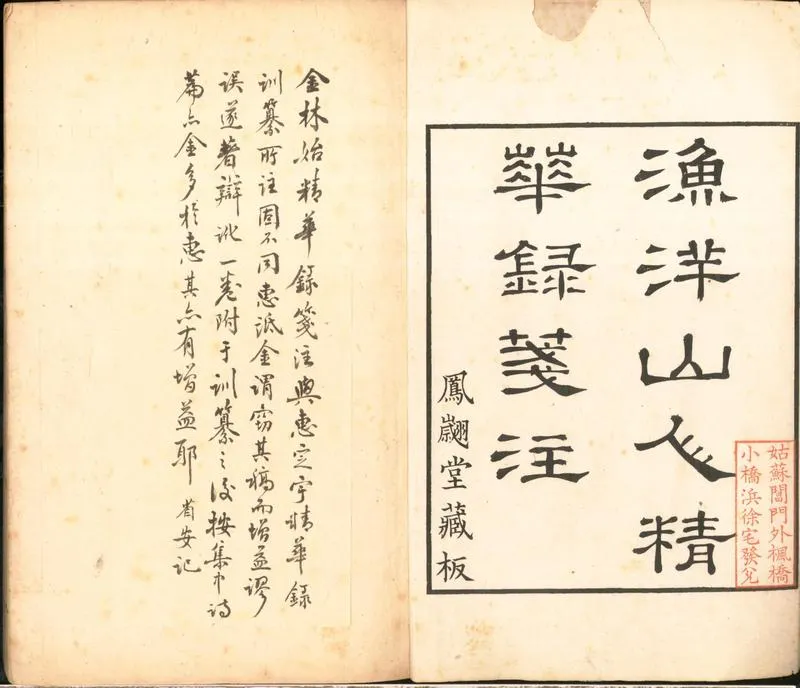 漁洋山人精
華録箋注
鳳翽堂藏板
姑蘇閶門外楓橋
小橋浜徐宅發兌
金林始精華錄箋注與惠定宇精華錄
訓纂所注固不同惠詆金謂竊其稿而增益謬
误遂著辯訛一卷附于訓纂之後按集中诗
篇亦金多於惠其亦有增益耶 省安記